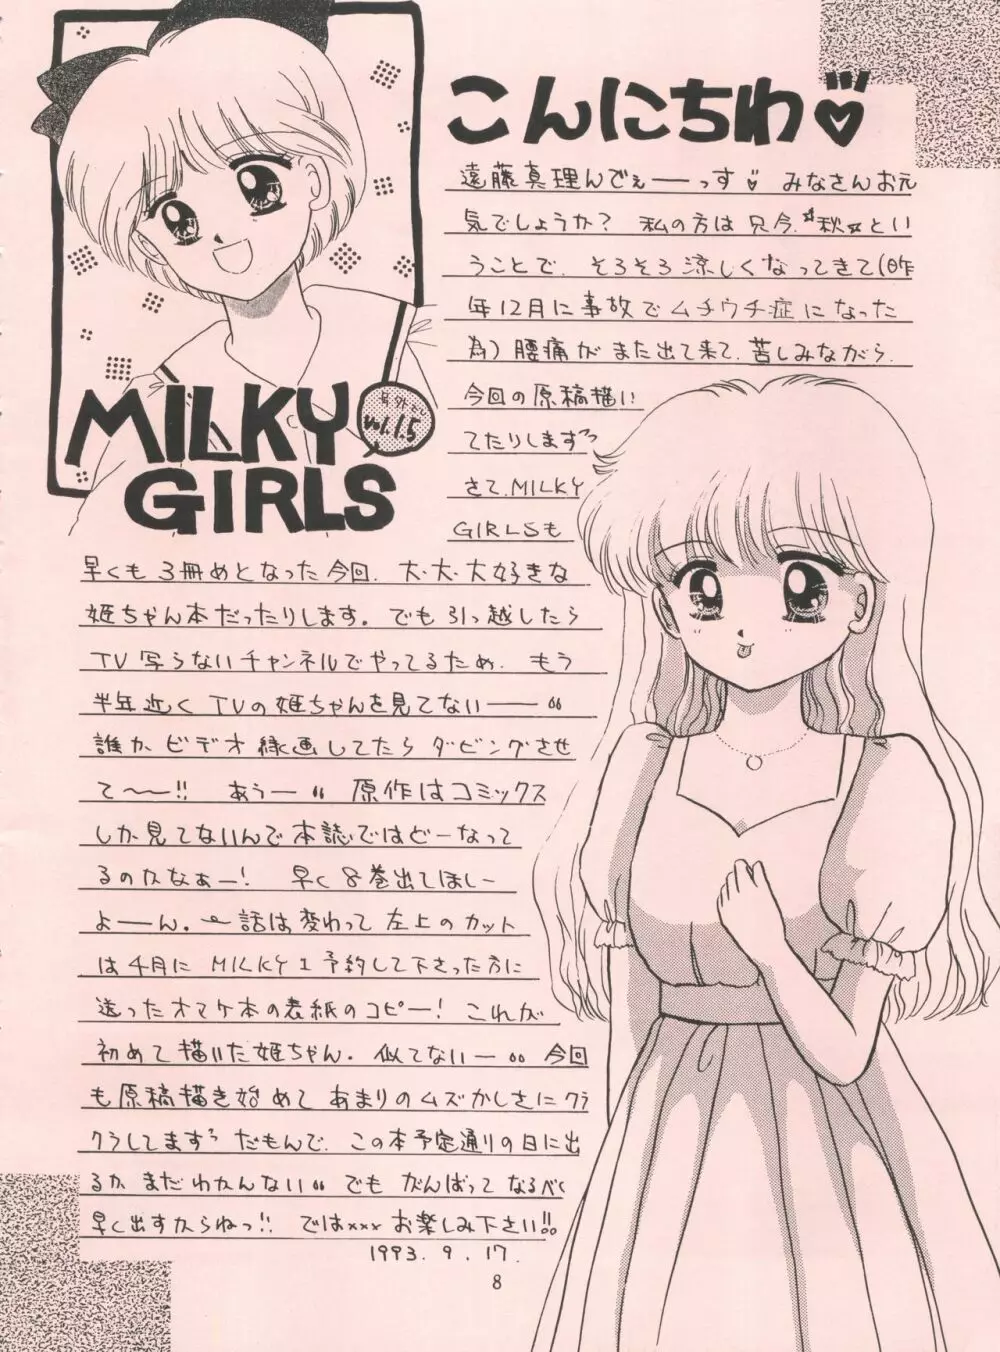 MILKY
GIRLS
号外
vol.1.5
こんにちわ♡
遠藤真理んでぇーーっす♡ みなさんお元
気でしょうか? 私の方は只今、☆秋☆とい
うことで、そろそろ涼しくなってきて(昨
年12月に事故でムチウチ症になった
為)腰痛がまた出て来て、苦しみながら、
今回の原稿描い
てたりします
さて、MILKY
GIRLSも
早くも3冊めとなった今回、大・大・大好きな
姫ちゃん本だったりします。でも引っ越したら
TV写らないチャンネルでやってるため、もう
半年近くTVの姫ちゃんを見てないーー
誰かビデオ録画してたらダビングさせ
て〜〜!! あぅー 原作はコミックス
しか見てないんで本誌ではどーなって
るのかなぁー! 早く8巻出てほしー
よーーん。〜話は変わって左上のカット
は4月にMILKY 1予約して下さった方に
送ったオマケ本の表紙のコピー! これが
初めて描いた姫ちゃん。似てないー 今回
も原稿描き始めてあまりのムズかしさにクラ
クラしてます だもんで、この本予定通りの日に出
るかまだわかんない でもがんばってなるべく
早く出すからねっ!! ではxxxお楽しみ下さい!!
1993. 9. 17.
8